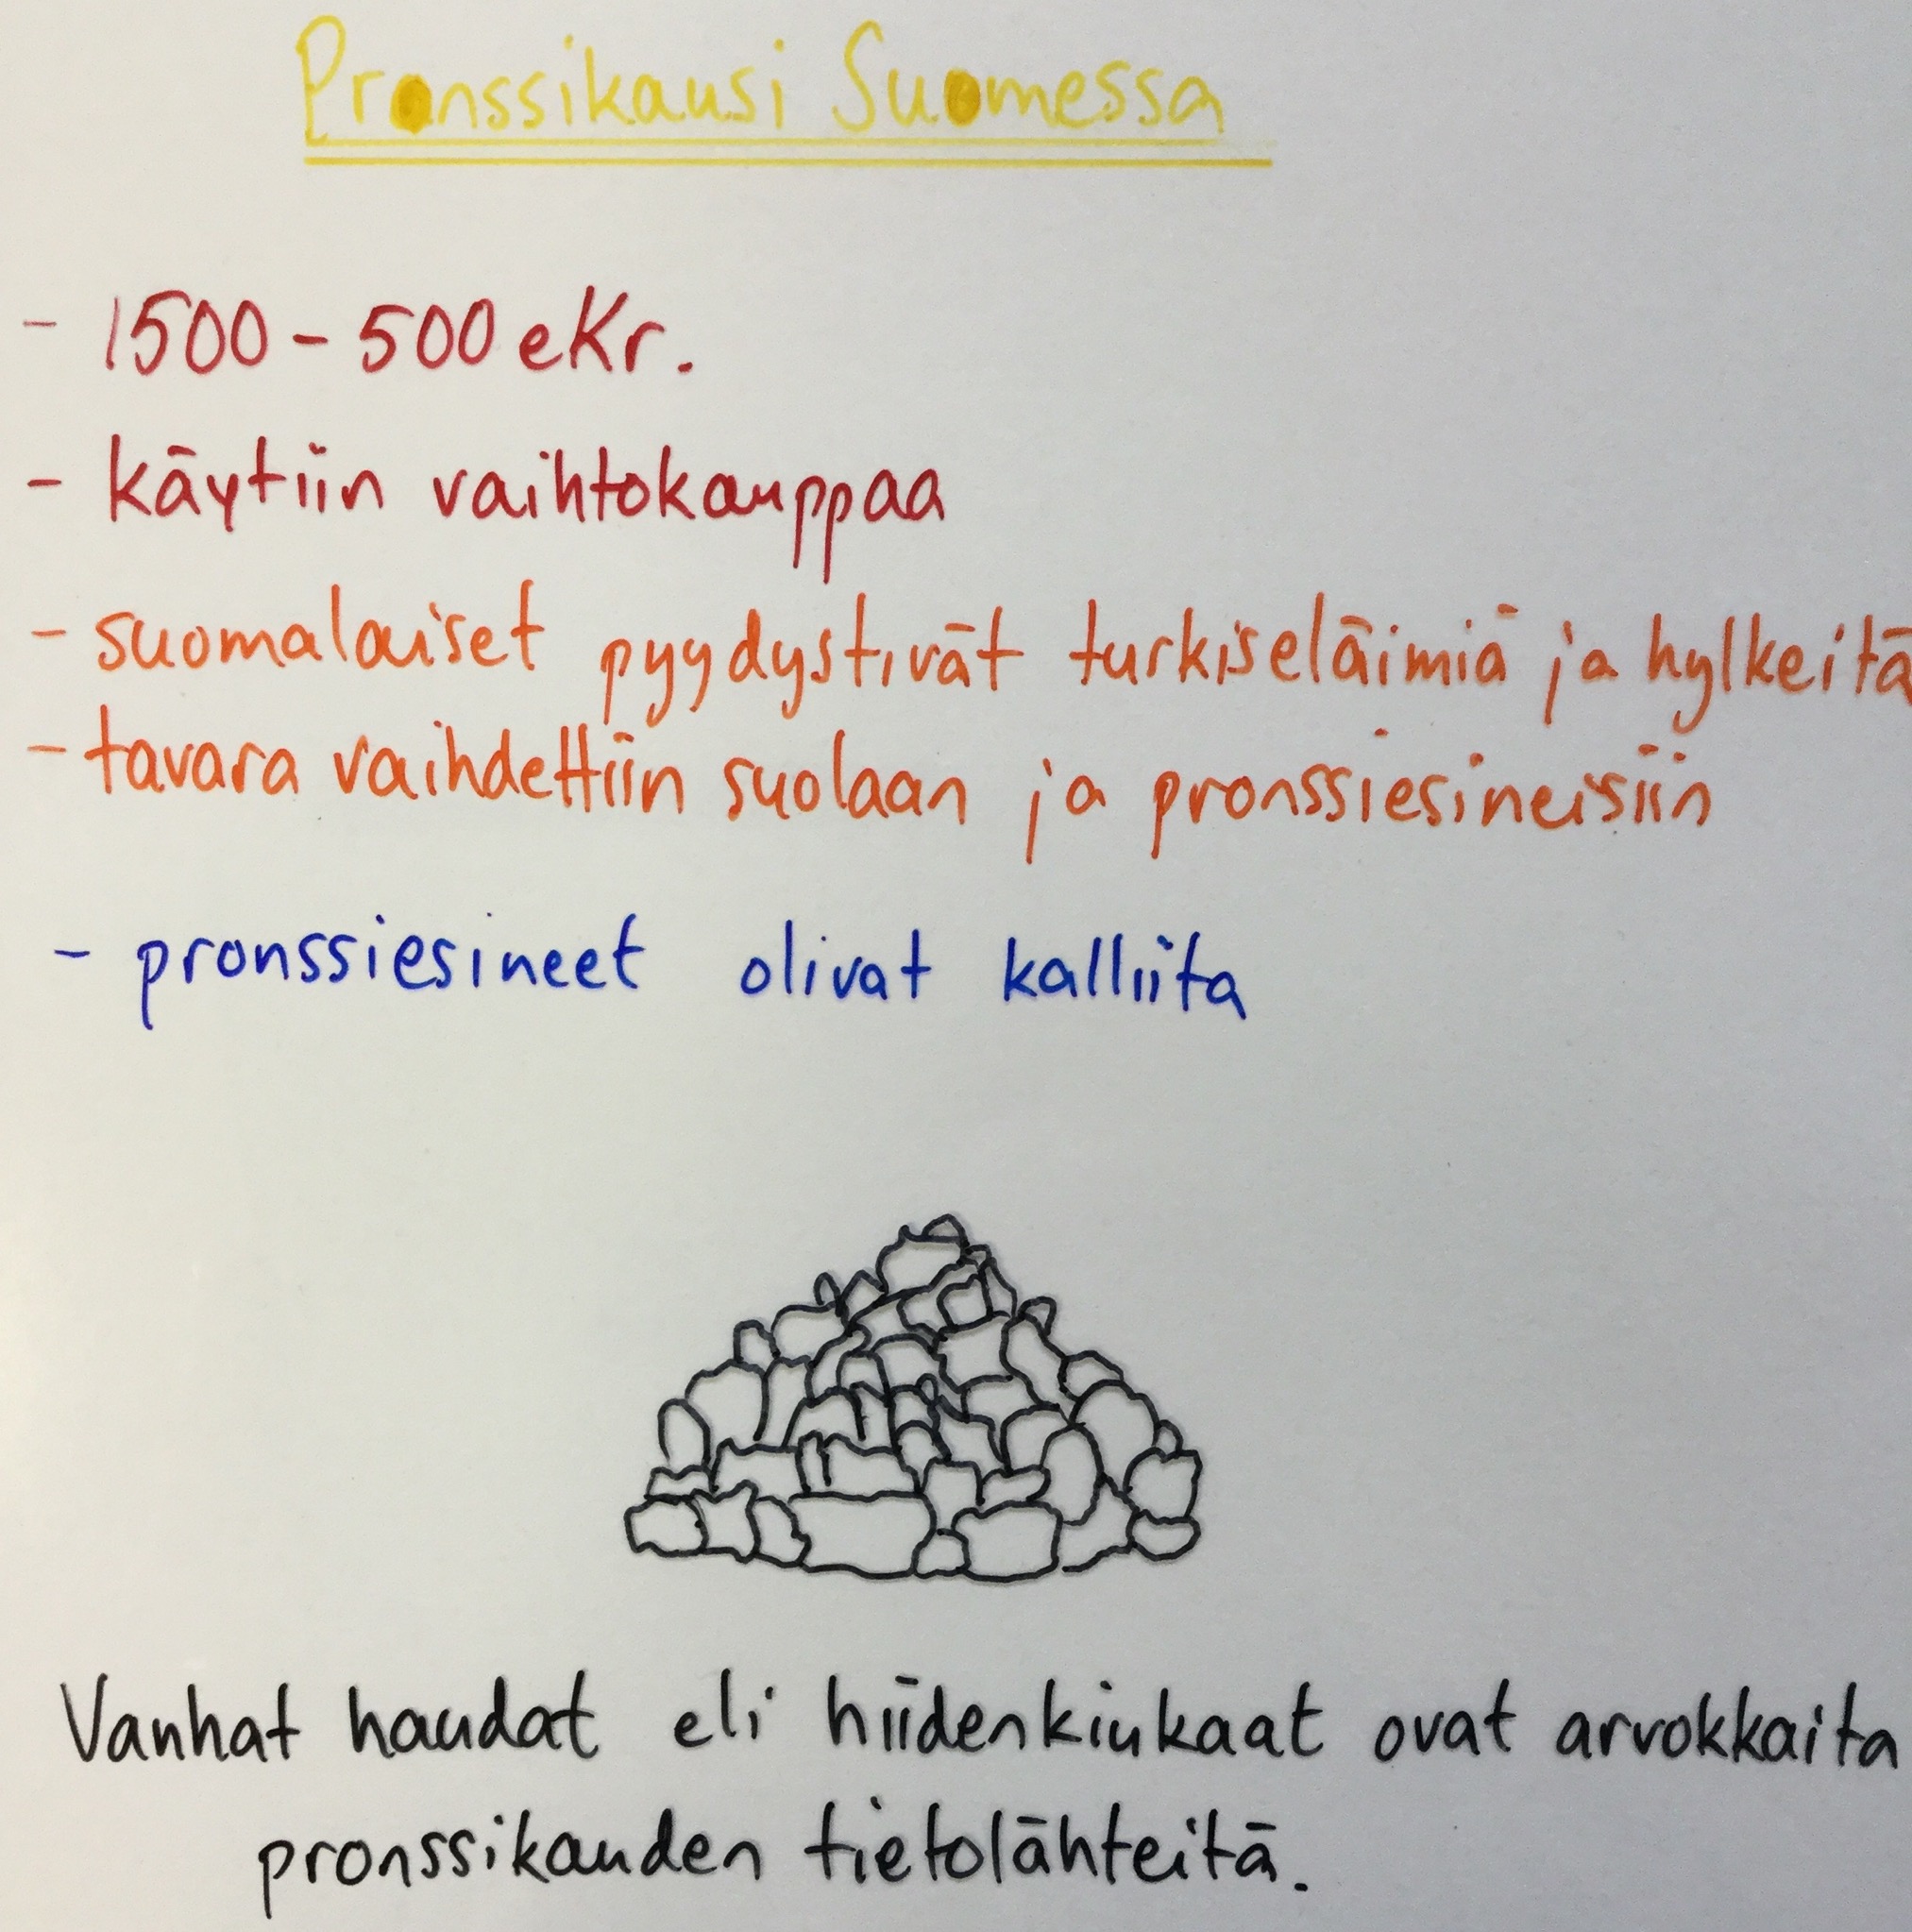 Pronssikausi Suomessa
- 1500 - 500 eKr.
- käytiin vaihtokauppaa
- suomalaiset pyydystivät turkiseläimiä ja hylkeitä
- tavara vaihdettiin suolaan ja pronssiesineisiin
- pronssiesineet olivat kalliita
Vanhat haudat eli hiidenkiukaat ovat arvokkaita
pronssikauden tietolähteitä.